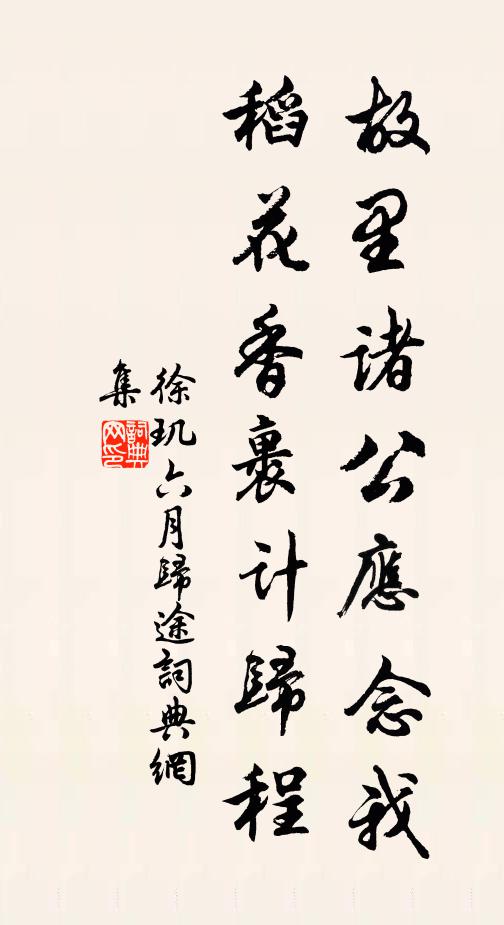 故里诸公應念我
稻花香裏计歸程
徐玑六月歸途詞典網
集
詞典網印